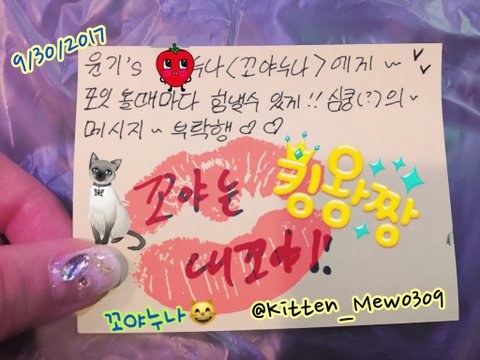 9/30/2017
윤기's 누나<꼬야누나>에게~
포잇 볼때마다 힘낼수 있게!! 심쿵(?)의~
메시지~ 부탁행♡♡
꼬야는
킹왕짱
내꼬야!!
꼬야누나
@Kitten_Mew0309